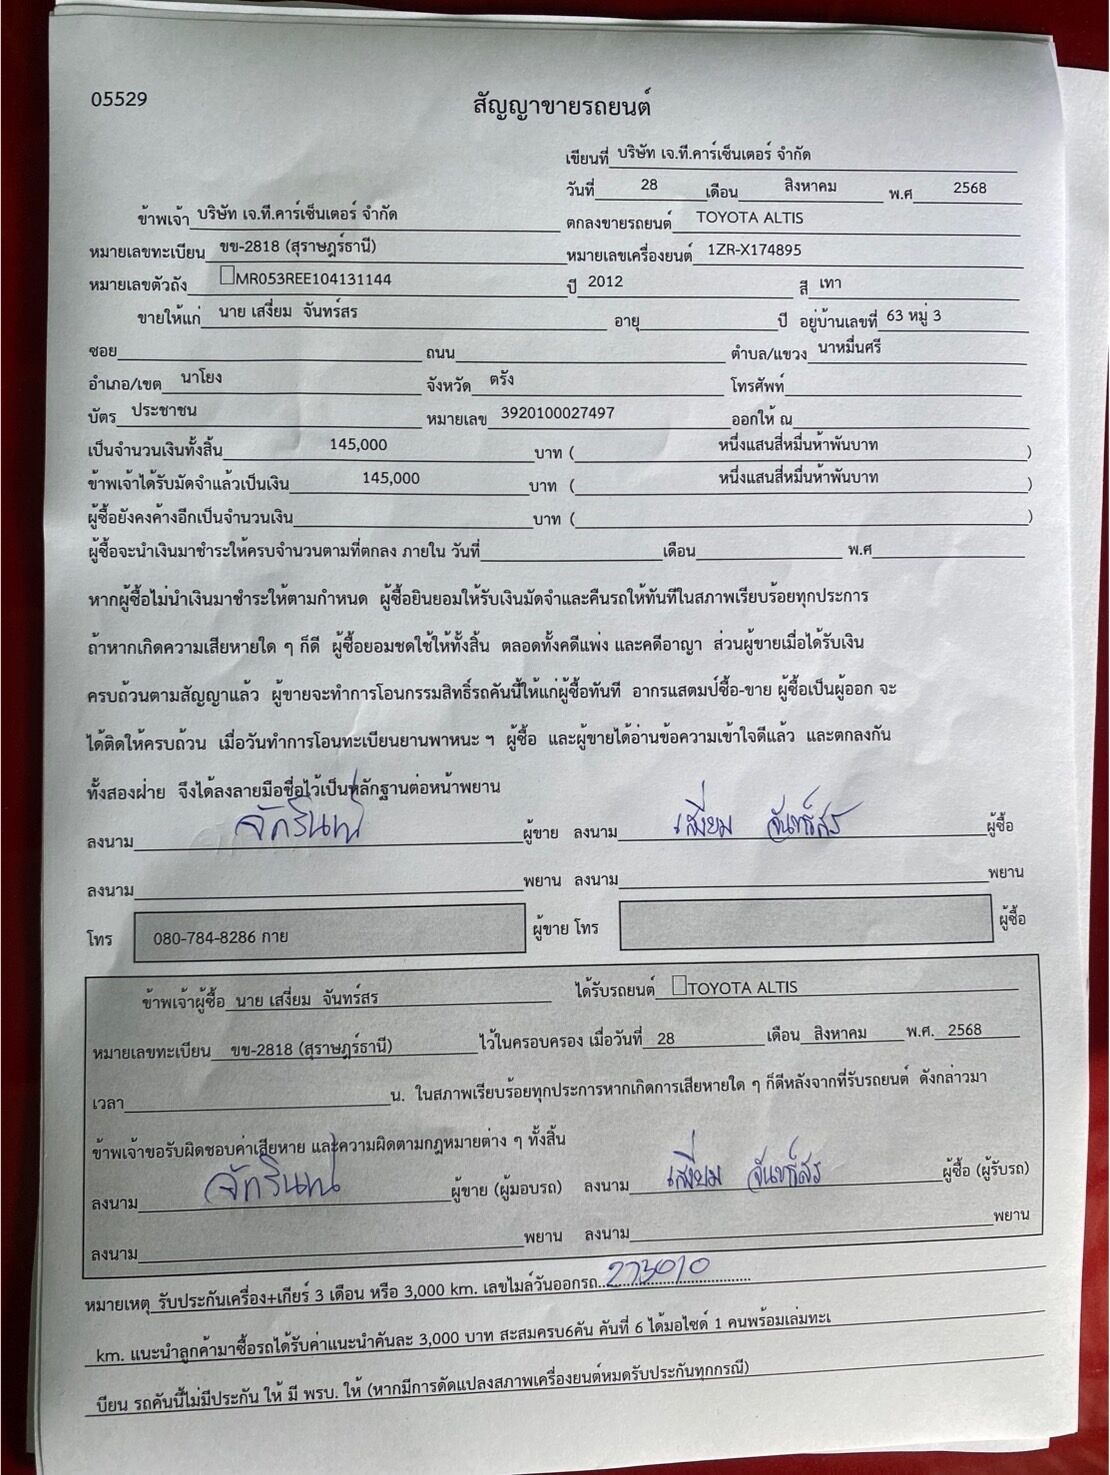 05529
สัญญาขายรถยนต์
เขียนที่ บริษัท เจ.ที.คาร์เซ็นเตอร์ จำกัด
วันที่ 28 เดือน สิงหาคม พ.ศ 2568
ข้าพเจ้า บริษัท เจ.ที.คาร์เซ็นเตอร์ จำกัด ตกลงขายรถยนต์ TOYOTA ALTIS
หมายเลขทะเบียน ขข-2818 (สุราษฎร์ธานี) หมายเลขเครื่องยนต์ 1ZR-X174895
หมายเลขตัวถัง MR053REE104131144 ปี 2012 สี เทา
ขายให้แก่ นาย เสงี่ยม จันทร์สร อายุ ปี อยู่บ้านเลขที่ 63 หมู่ 3
ซอย ถนน ตำบล/แขวง นาหมื่นศรี
อำเภอ/เขต นาโยง จังหวัด ตรัง โทรศัพท์
บัตร ประชาชน หมายเลข 3920100027497 ออกให้ ณ
เป็นจำนวนเงินทั้งสิ้น 145,000 บาท ( หนึ่งแสนสี่หมื่นห้าพันบาท )
ข้าพเจ้าได้รับมัดจำแล้วเป็นเงิน 145,000 บาท ( หนึ่งแสนสี่หมื่นห้าพันบาท )
ผู้ซื้อยังคงค้างอีกเป็นจำนวนเงิน บาท ( )
ผู้ซื้อจะนำเงินมาชำระให้ครบจำนวนตามที่ตกลง ภายใน วันที่ เดือน พ.ศ
หากผู้ซื้อไม่นำเงินมาชำระให้ตามกำหนด ผู้ซื้อยินยอมให้รับเงินมัดจำและคืนรถให้ทันทีในสภาพเรียบร้อยทุกประการ
ถ้าหากเกิดความเสียหายใด ๆ ก็ดี ผู้ซื้อยอมชดใช้ให้ทั้งสิ้น ตลอดทั้งคดีแพ่ง และคดีอาญา ส่วนผู้ขายเมื่อได้รับเงิน
ครบถ้วนตามสัญญาแล้ว ผู้ขายจะทำการโอนกรรมสิทธิ์รถคันนี้ให้แก่ผู้ซื้อทันที อากรแสตมป์ซื้อ-ขาย ผู้ซื้อเป็นผู้ออก จะ
ได้ติดให้ครบถ้วน เมื่อวันทำการโอนทะเบียนยานพาหนะ ฯ ผู้ซื้อ และผู้ขายได้อ่านข้อความเข้าใจดีแล้ว และตกลงกัน
ทั้งสองฝ่าย จึงได้ลงลายมือชื่อไว้เป็นหลักฐานต่อหน้าพยาน
ลงนาม ผู้ขาย ลงนาม เสงี่ยม จันทร์สร ผู้ซื้อ
ลงนาม พยาน ลงนาม พยาน
โทร 080-784-8286 กาย ผู้ขาย โทร ผู้ซื้อ
ข้าพเจ้าผู้ซื้อ นาย เสงี่ยม จันทร์สร ได้รับรถยนต์ TOYOTA ALTIS
หมายเลขทะเบียน ขข-2818 (สุราษฎร์ธานี) ไว้ในครอบครอง เมื่อวันที่ 28 เดือน สิงหาคม พ.ศ. 2568
เวลา น. ในสภาพเรียบร้อยทุกประการหากเกิดการเสียหายใด ๆ ก็ดีหลังจากที่รับรถยนต์ ดังกล่าวมา
ข้าพเจ้าขอรับผิดชอบค่าเสียหาย และความผิดตามกฎหมายต่าง ๆ ทั้งสิ้น
ลงนาม ผู้ขาย (ผู้มอบรถ) ลงนาม เสงี่ยม จันทร์สร ผู้ซื้อ (ผู้รับรถ)
ลงนาม พยาน ลงนาม พยาน
หมายเหตุ รับประกันเครื่อง+เกียร์ 3 เดือน หรือ 3,000 km. เลขไมล์วันออกรถ 273010
km. แนะนำลูกค้ามาซื้อรถได้รับค่าแนะนำคันละ 3,000 บาท สะสมครบ6คัน คันที่ 6 ได้มอไซด์ 1 คนพร้อมเล่มทะเ
บียน รถคันนี้ไม่มีประกัน ให้ มี พรบ. ให้ (หากมีการดัดแปลงสภาพเครื่องยนต์หมดรับประกันทุกกรณี)